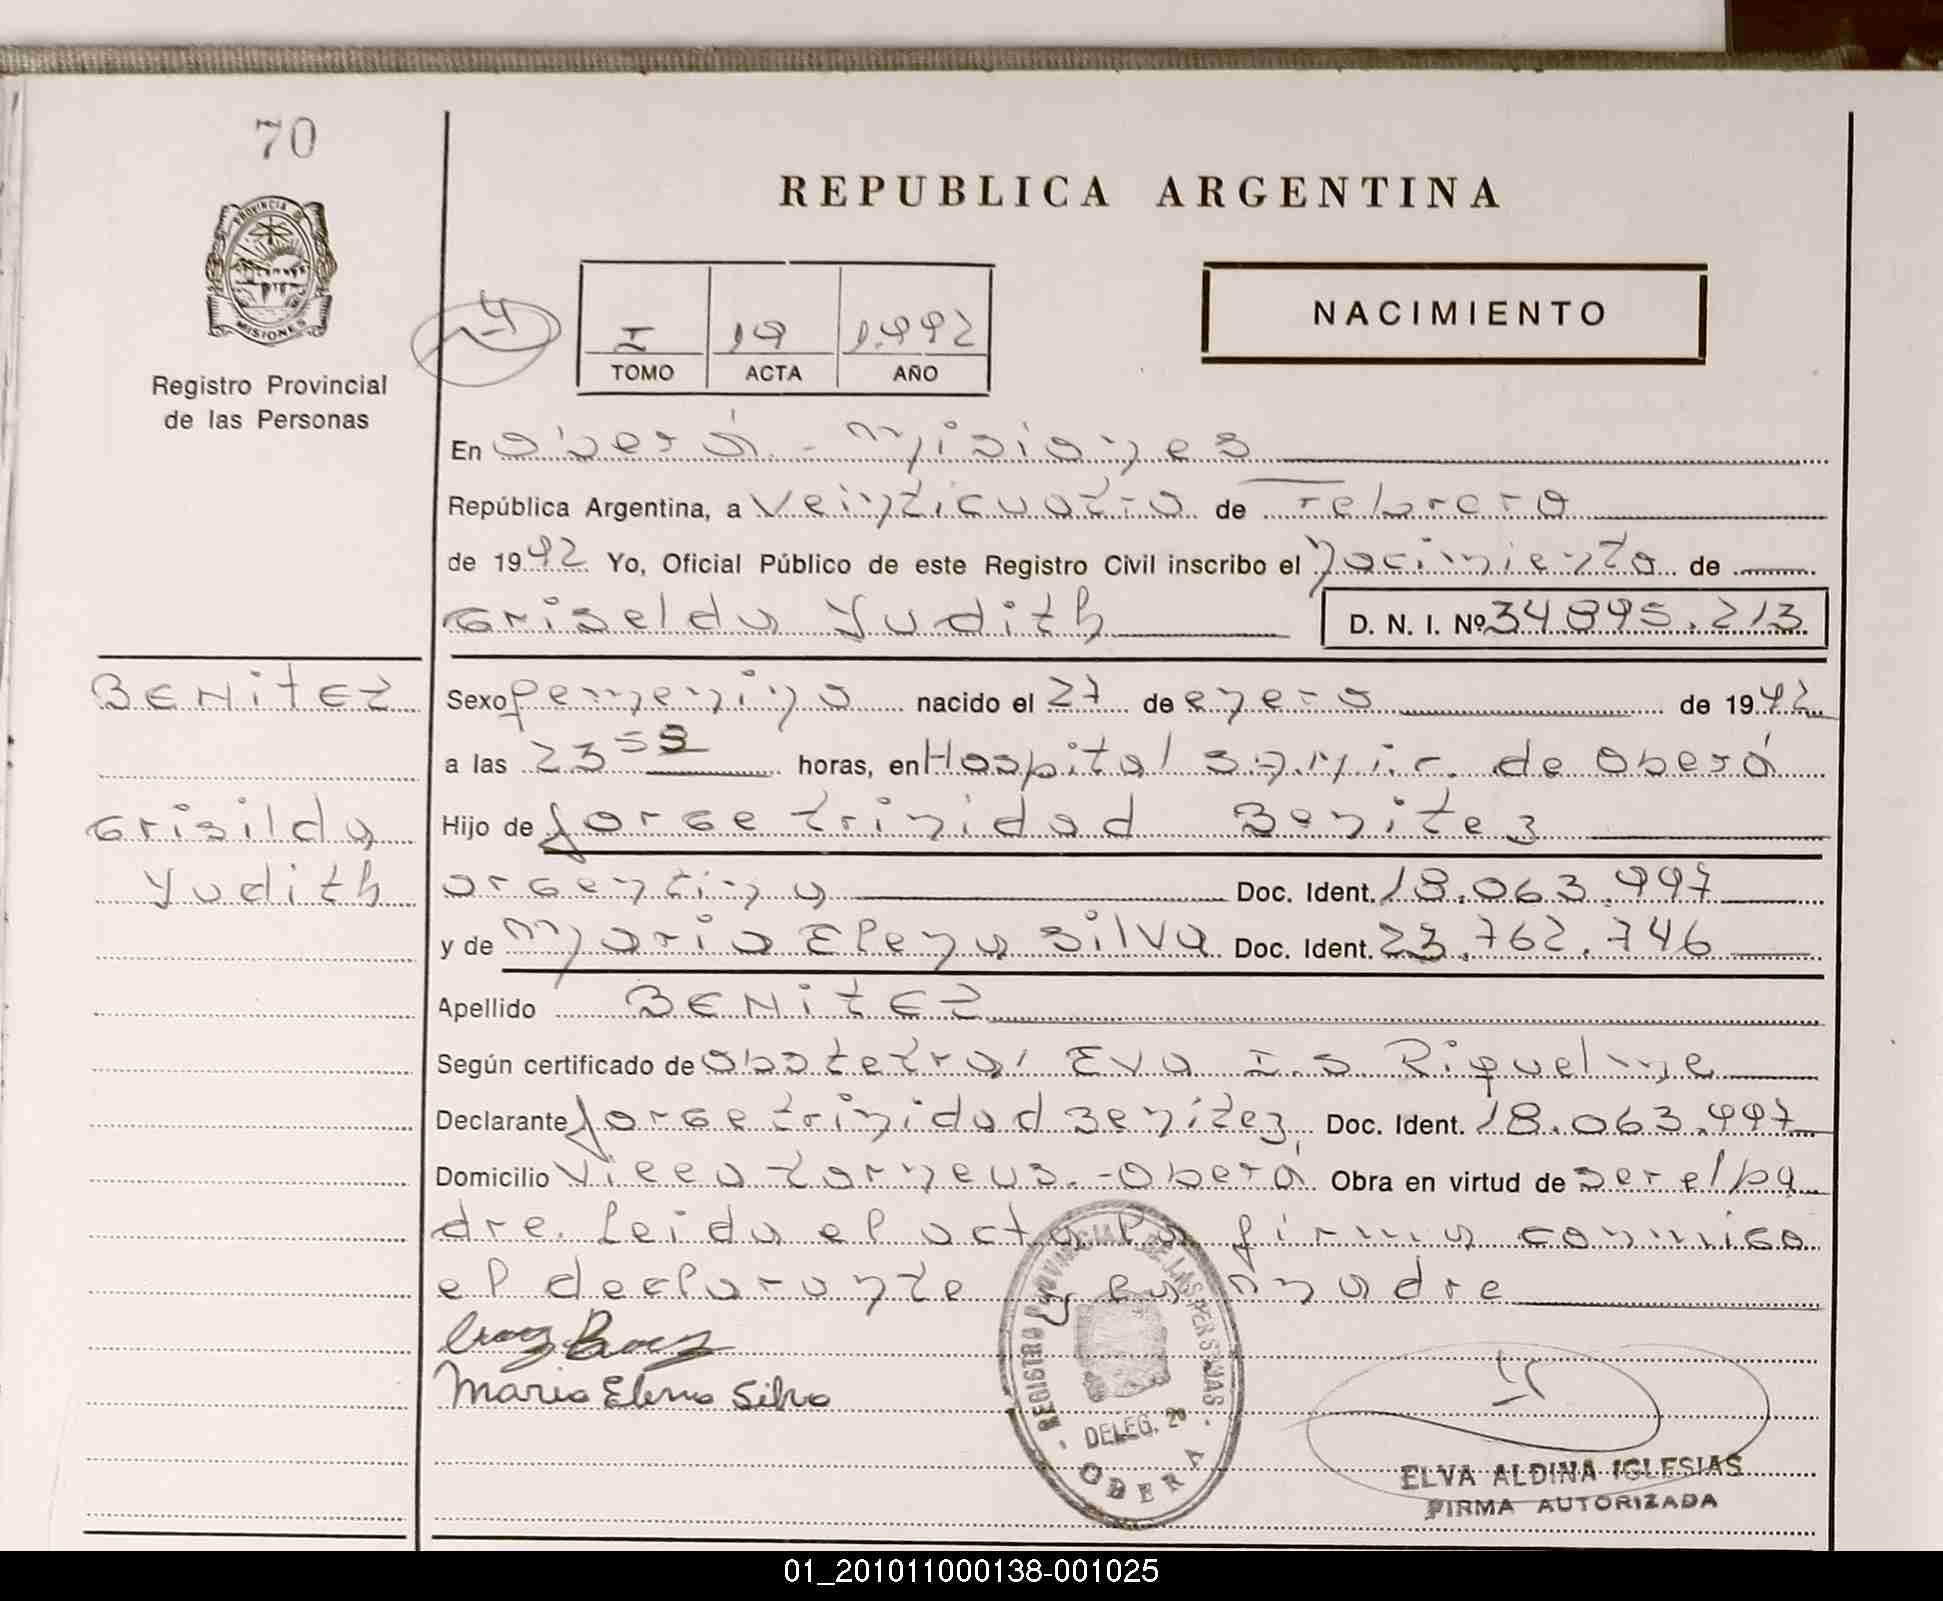 70
REPUBLICA ARGENTINA
PROVINCIA DE
MISIONES
Registro Provincial
de las Personas
I 19 1.992
TOMO ACTA AÑO
NACIMIENTO
En Oberá - Misiones
República Argentina, a Veinticuatro de Febrero
de 1992 Yo, Oficial Público de este Registro Civil inscribo el Nacimiento de
Griselda Yudith D. N. I. Nº 34.895.213
BENITEZ
Grisilda
Yudith
Sexo femenino nacido el 27 de enero de 1992
a las 23 horas, en Hospital de Oberá
Hijo de Jorge trinidad Benitez
argentina Doc. Ident. 18.063.997
y de Maria Elena Silva Doc. Ident. 23.762.746
Apellido BENITEZ
Según certificado de obstetra, Eva I. S Riquelme
Declarante Jorge trinidad Benitez, Doc. Ident. 18.063.997
Domicilio Villa Oberá Obra en virtud de ser el pa
dre. Leida el acta la firma conmigo
el declarante y la madre
Maria Elena Silva
REGISTRO PROVINCIAL DE LAS PERSONAS
DELEG. 20
OBERA
ELVA ALDINA IGLESIAS
FIRMA AUTORIZADA
01_201011000138-001025